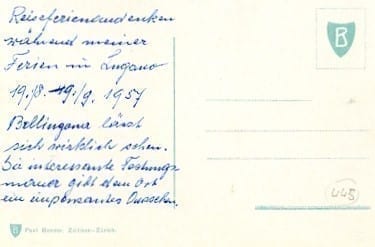 Reiseferienandenken
während meiner
Ferien in Lugano
19./8. - 19./9. 1957
Bellinzona lässt
sich wirklich sehen.
Die interessante Festungs
mauer gibt dem Ort
ein imposantes Aussehen.
B
445
B Paul Bender, Zollikon-Zürich.